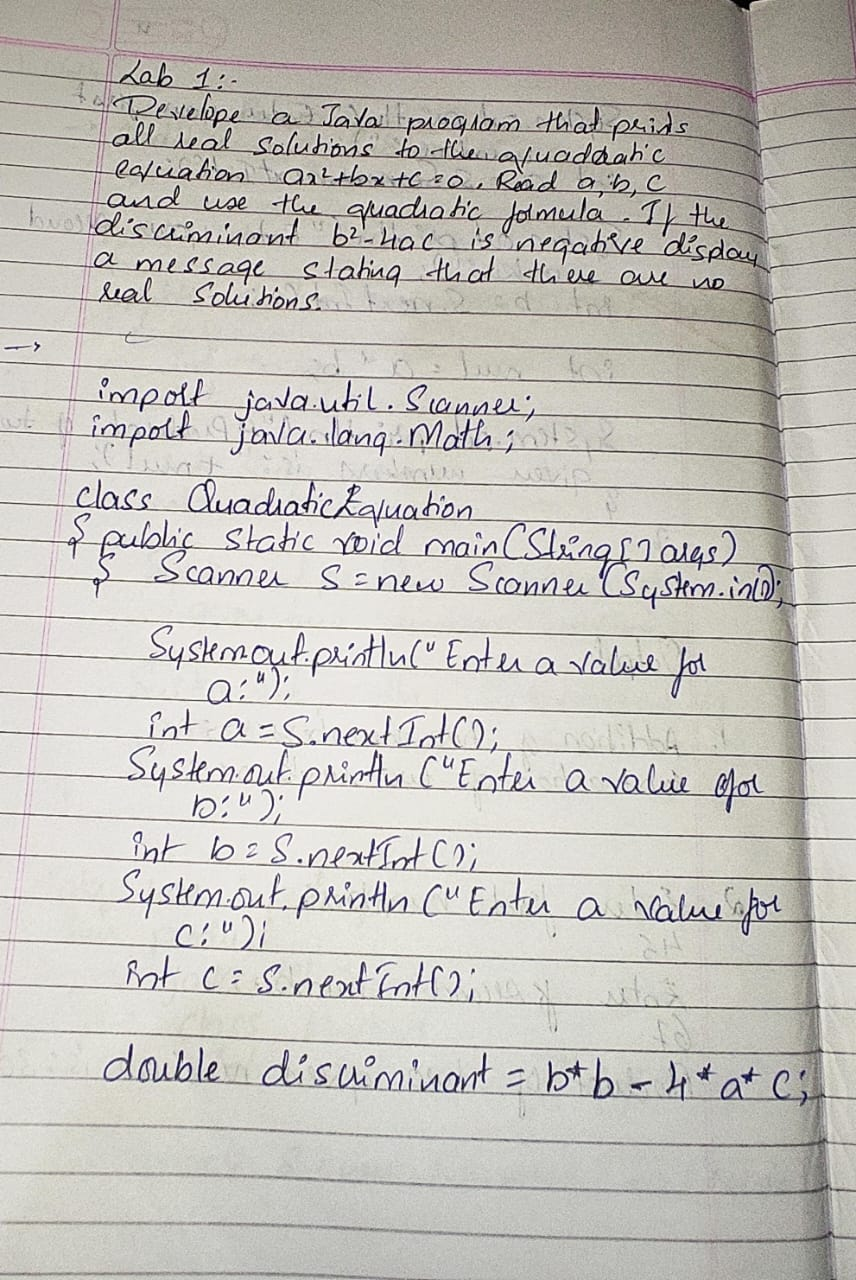 Lab 1:-
Develope a Java program that prints
all real solutions to the quadratic
equation ax²+bx+c=0. Read a, b, c
and use the quadratic formula. If the
discriminant b²-4ac is negative display
a message stating that there are no
real solutions.
→
import java.util.Scanner;
import java.lang.Math;
class QuadraticEquation
{ public static void main(String[] args)
{ Scanner S = new Scanner(System.in);
System.out.println("Enter a value for
a:");
int a = S.nextInt();
System.out.println("Enter a value for
b:");
int b = S.nextInt();
System.out.println("Enter a value for
c:");
int c = S.nextInt();
double discriminant = b*b-4*a*c;